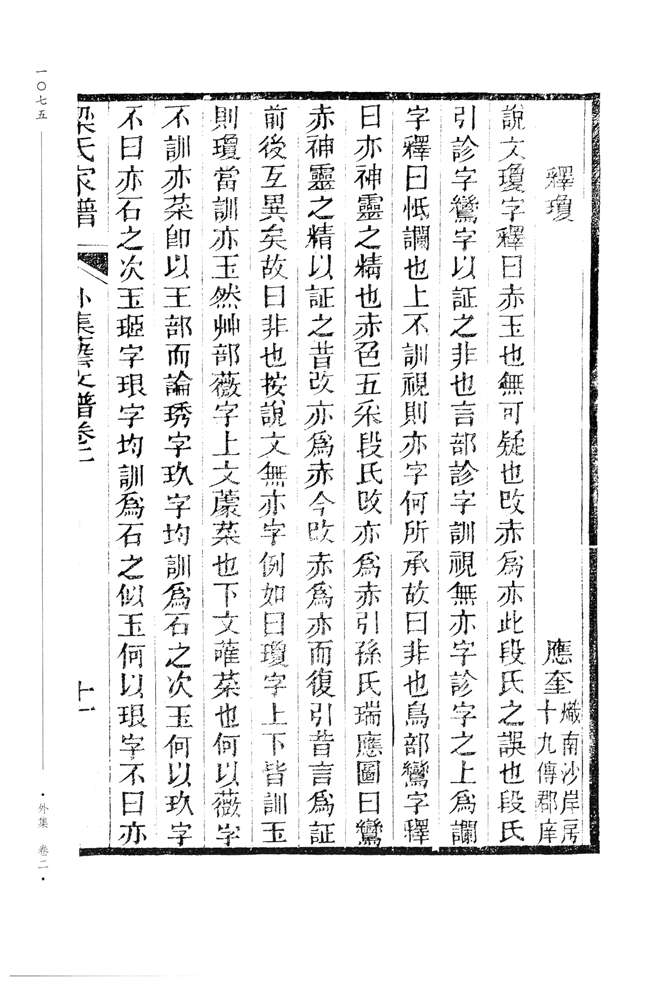 釋瓊
應奎熾南沙岸房十九傳郡庠
說文瓊字釋曰赤玉也無可疑也改赤爲亦此段氏之誤也段氏
引診字鸞字以証之非也言部診字訓視無亦字診字之上爲讕
字釋曰怟讕也上不訓視則亦字何所承故曰非也鳥部鸞字釋
曰亦神靈之精也赤色五采段氏改亦爲赤引孫氏瑞應圖曰鸞
赤神靈之精以証之昔改亦爲赤今改赤爲亦而復引昔言爲証
前後互異矣故曰非也按說文無亦字例如曰瓊字上下皆訓玉
則瓊當訓亦玉然艸部薇字上文蘪菜也下文蓶菜也何以薇字
不訓亦菜卽以王部而論琇字玖字均訓爲石之次玉何以玖字
不曰亦石之次玉瑘字珢字均訓爲石之似玉何以珢字不曰亦
梁氏家譜
外集藝文譜卷二
十一
一〇七五
·外集 卷二·